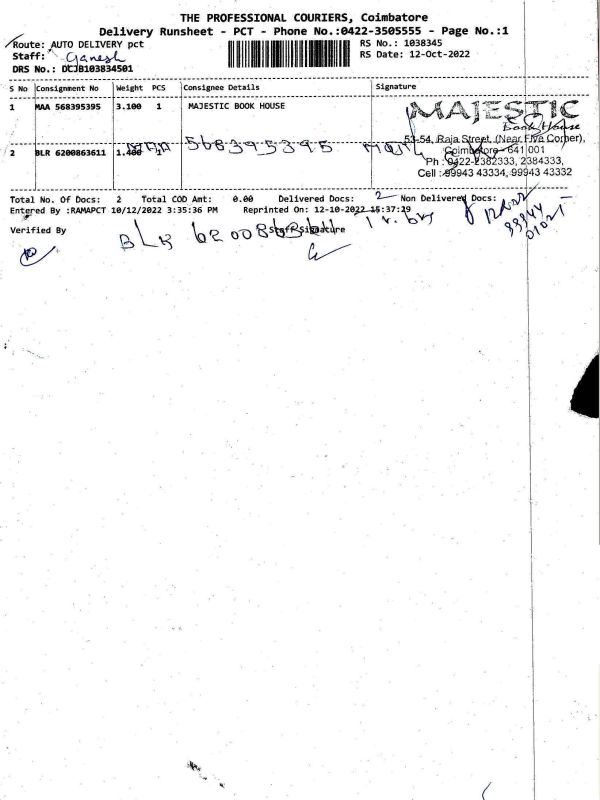 THE PROFESSIONAL COURIERS, Coimbatore
Delivery Runsheet - PCT - Phone No.:0422-3505555 - Page No.:1
Route: AUTO DELIVERY pct
RS No.: 1038345
Staff: Ganesh
RS Date: 12-Oct-2022
DRS No.: DCJB103834501
S No Consignment No Weight PCS Consignee Details Signature
1 MAA 568395395 3.100 1 MAJESTIC BOOK HOUSE
MAJESTIC
Book House
53-54, Raja Street, (Near Five Corner),
Coimbatore - 641 001
Ph : 0422-2382333, 2384333,
Cell : 99943 43334, 99943 43332
MAA 568395395
2 BLR 6200863611 1.400 1
Total No. Of Docs: 2 Total COD Amt: 0.00 Delivered Docs: 2 Non Delivered Docs:
Entered By :RAMAPCT 10/12/2022 3:35:36 PM Reprinted On: 12-10-2022 15:37:29
99944
01021
Verified By
Staff Signature